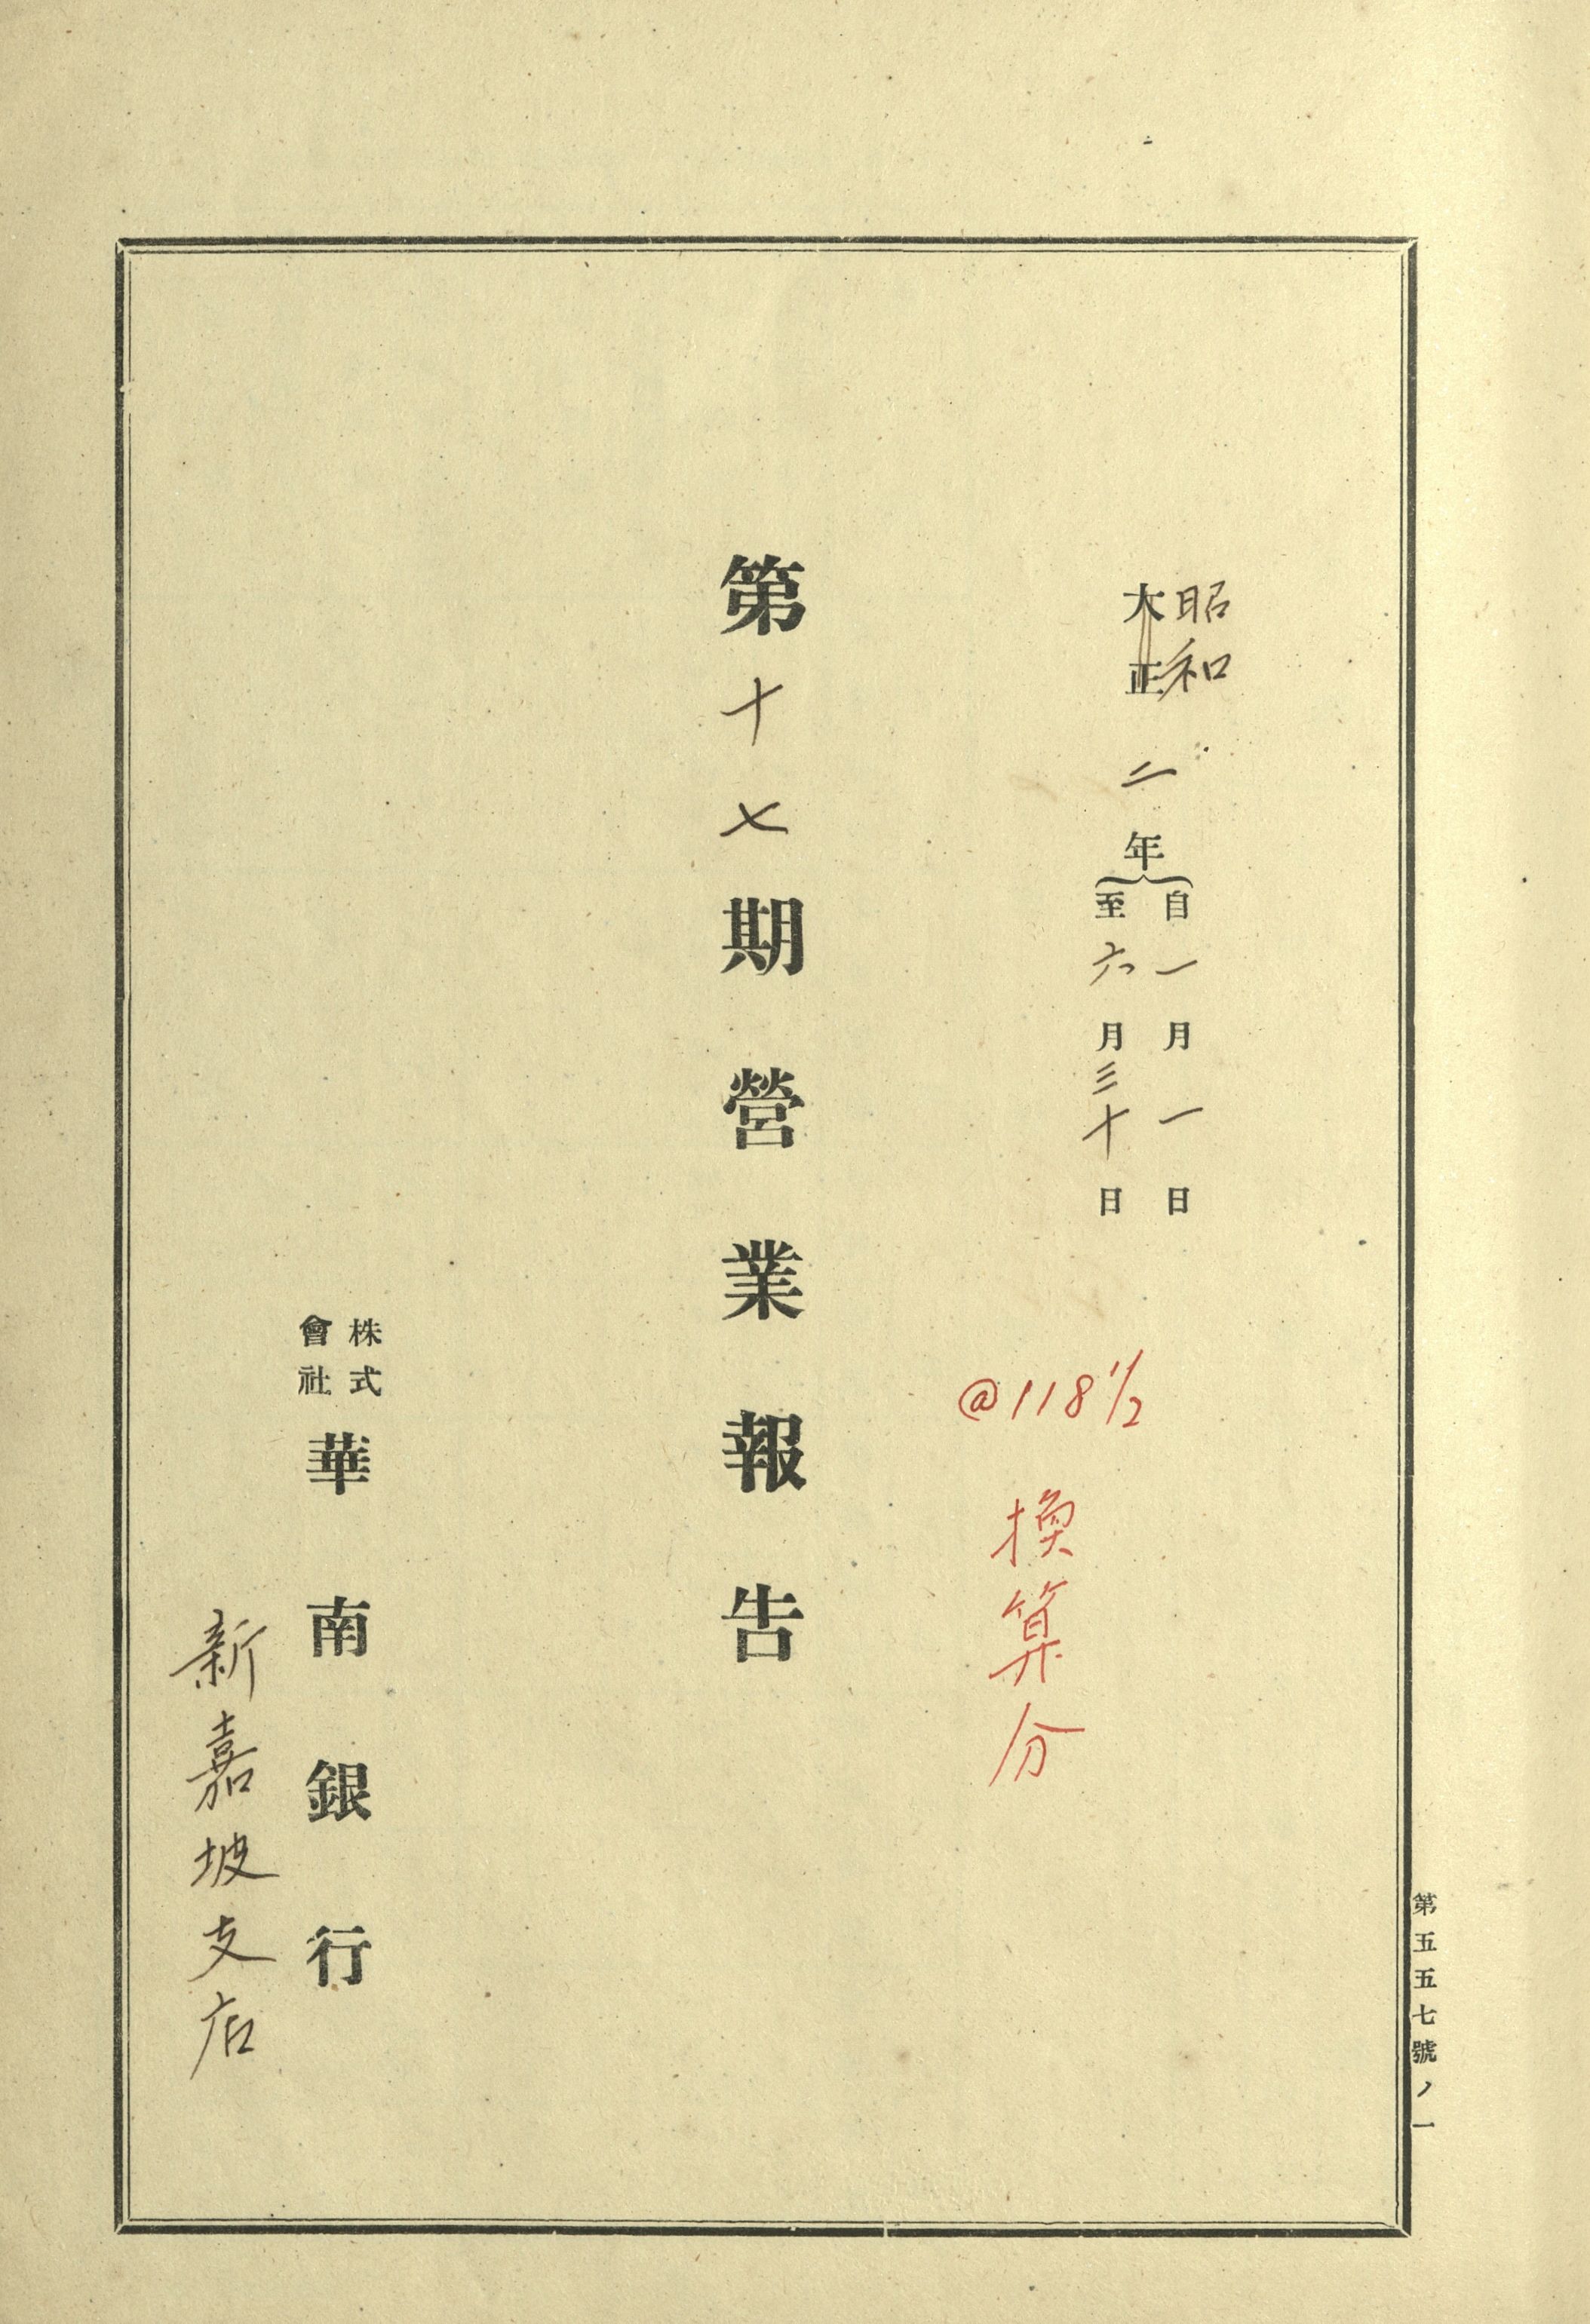 昭和
大正二年
自一月一日
至六月三十日
@118 1/2
換算分
第十七期營業報告
株式
會社
華南銀行
新嘉坡支店
第五五七號ノ一